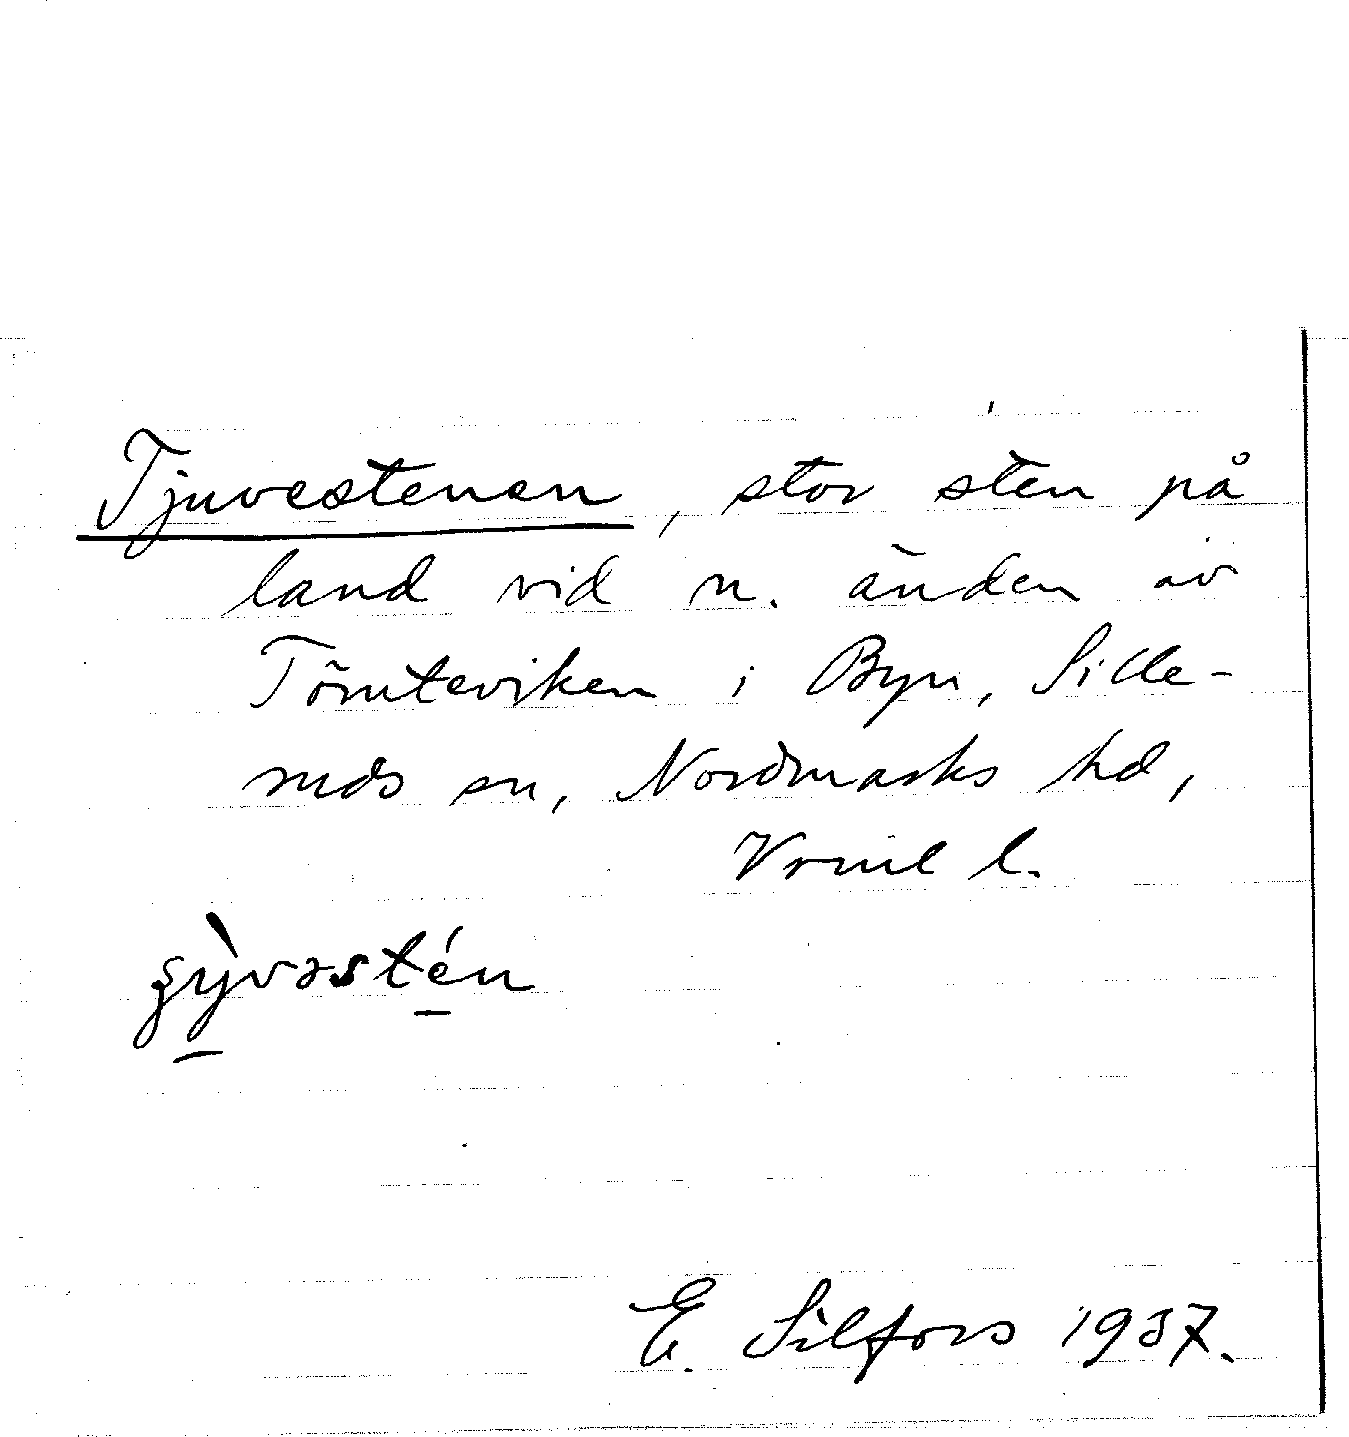 Tjuvestenen, stor sten på
land vid n. änden av
Tömteviken i Byn, Sille-
ruds sn, Nordmarks hd,
Vrml l.
E. Silfors 1937.